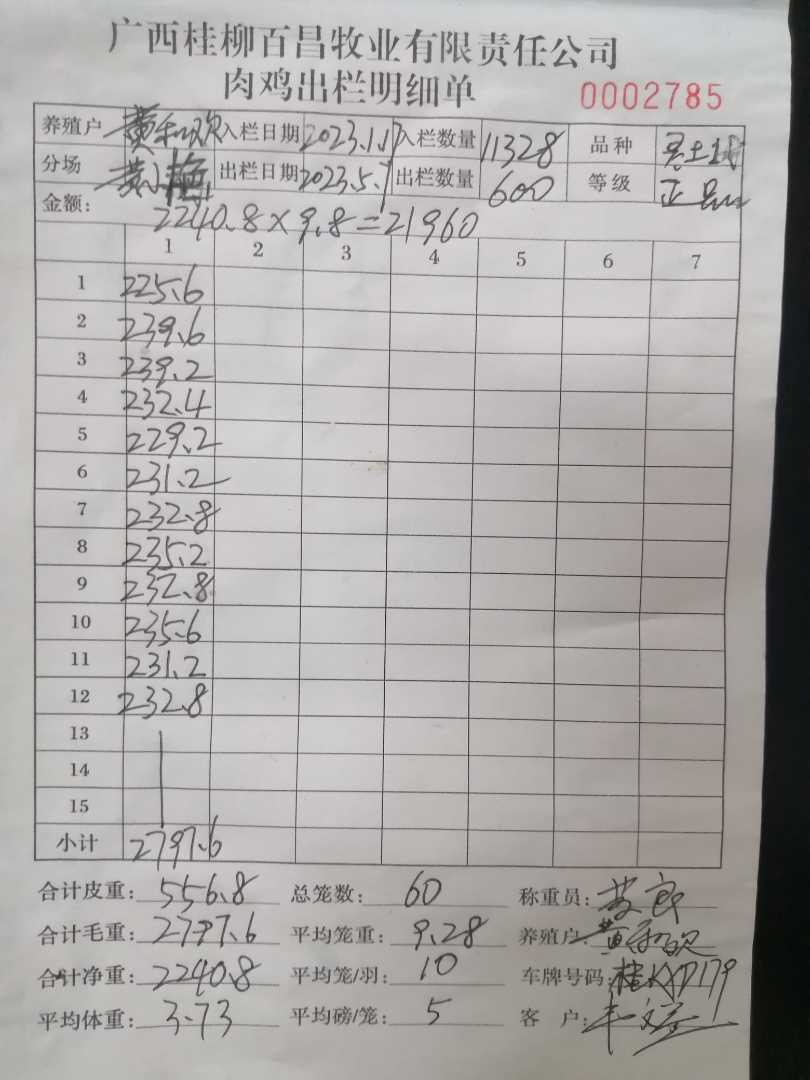 广西桂柳百昌牧业有限责任公司
肉鸡出栏明细单 0002785
养殖户 黄和欢 入栏日期 2023.1.17 入栏数量 11328 品种
分场 黄小梅 出栏日期 2023.5.7 出栏数量 600 等级 正品
金额: 2240.8×9.8=21960
1 2 3 4 5 6 7
1 225.6
2 239.6
3 239.2
4 232.4
5 229.2
6 231.2
7 232.8
8 235.2
9 232.8
10 235.6
11 231.2
12 232.8
13
14
15
小计 2797.6
合计皮重: 556.8 总笼数: 60 称重员:
合计毛重: 2797.6 平均笼重: 9.28 养殖户 黄和欢
合计净重: 2240.8 平均笼/羽: 10 车牌号码: 桂KXD179
平均体重: 3.73 平均磅/笼: 5 客户: